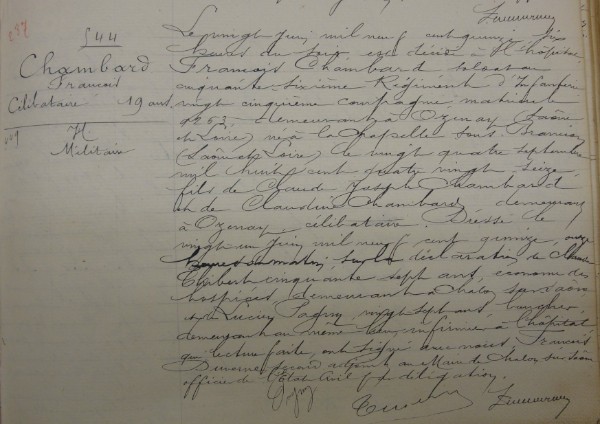 544
Chambard
François
Célibataire 19 ans
H
Militaire
Le vingt juin mil neuf cent quinze, six
heures du soir, est décédé à l'hôpital,
François Chambard soldat au
cinquante-sixième Régiment d'Infanterie
vingt cinquième compagnie, matricule
demeurant à Ozenay (Saône
et Loire) né à la Chapelle sous Brancion
(Saône et Loire) le vingt quatre septembre
mil huit cent quatre vingt seize,
fils de Claude Joseph Chambard
et de Claudine Chambard, demeurant
à Ozenay, célibataire. Dressé le
vingt un juin mil neuf cent quinze, onze
heures du matin, sur la déclaration de Claude
cinquante sept ans, économe des
hospices, demeurant à Chalon sur Saône,
et de Lucien Pagny, vingt sept ans,
demeurant au même lieu, infirmier à l'hôpital
qui lecture faite, ont signé avec nous, François
adjoint au Maire de Chalon sur Saône
officier de l'Etat Civil par délégation.